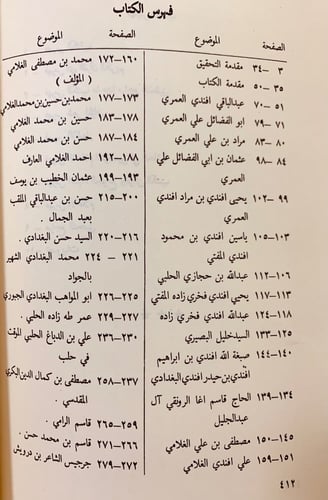 فهرس الكتاب
الصفحة الموضوع
٣ – ٣٤ مقدمة التحقيق
٣٥ – ٥٠ مقدمة الكتاب
٥١ – ٧٠ عبدالباقي افندي العمري
٧١ – ٧٩ ابو الفضائل علي العمري
٨٠ – ٨٣ مراد بن علي العمري
٨٤ – ٩٨ عثمان بن ابي الفضائل علي
العمري
٩٩ – ١٠٢ يحيى افندي بن مراد افندي
العمري
١٠٣–١٠٥ ياسين افندي بن محمود
افندي المفتي
١٠٦–١١٢ عبدالله بن حجازي الحلبي
١١٣–١١٧ يحيى افندي فخري زاده المفتي
١١٨–١٢٤ عبدالله افندي فخري زاده
١٢٥–١٣٣ السيد خليل البصيري
١٤٠–١٤٤ صبغة الله افندي بن ابراهيم
افندي بن حيدر افندي البغدادي
١٣٤–١٣٩ الحاج قاسم اغا الرونقي آل
عبدالجليل
١٤٥–١٥٠ مصطفى بن علي الغلامي
١٥١–١٥٩ علي افندي الغلامي
الصفحة الموضوع
١٦٠–١٧٢ محمد بن مصطفى الغلامي
( المؤلف )
١٧٣–١٧٧ محمد بن حسين بن محمد الغلامي
١٧٨–١٨٣ حسين بن محمد الغلامي
١٨٤–١٨٧ حسن بن محمد الغلامي
١٨٨–١٩٢ احمد الغلامي العارف
١٩٣–١٩٩ عثمان الخطيب بن يوسف
٢٠٠–٢١٥ حسن بن عبدالباقي الملقب
بعبد الجمال .
٢١٦–٢٢٠ السيد حسن البغدادي .
٢٢١ – ٢٢٤ محمد البغدادي الشهير
بالجواد
٢٢٥–٢٢٦ ابو المواهب البغدادي الجبوري
٢٢٧–٢٢٩ عمر طه زاده الحلبي .
٢٣٠–٢٣٦ علي بن الدباغ الحلبي الميقت
في حلب
٢٣٧–٢٥٨ مصطفى بن كمال الدين البكري
المقدسي .
٢٥٩–٢٦٥ قاسم الرامي .
٢٦٦–٢٧١ قاسم بن محمد حسن .
٢٧٢–٢٧٩ جرجيس الشاعر بن درويش
٤١٢